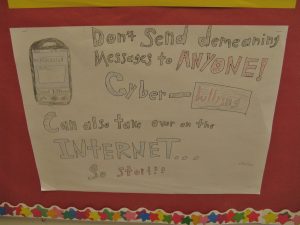 Don't Send demeaning
Messages to ANYONE!
Cyber-bullying
Can also take over on the
INTERNET...
So stop!!